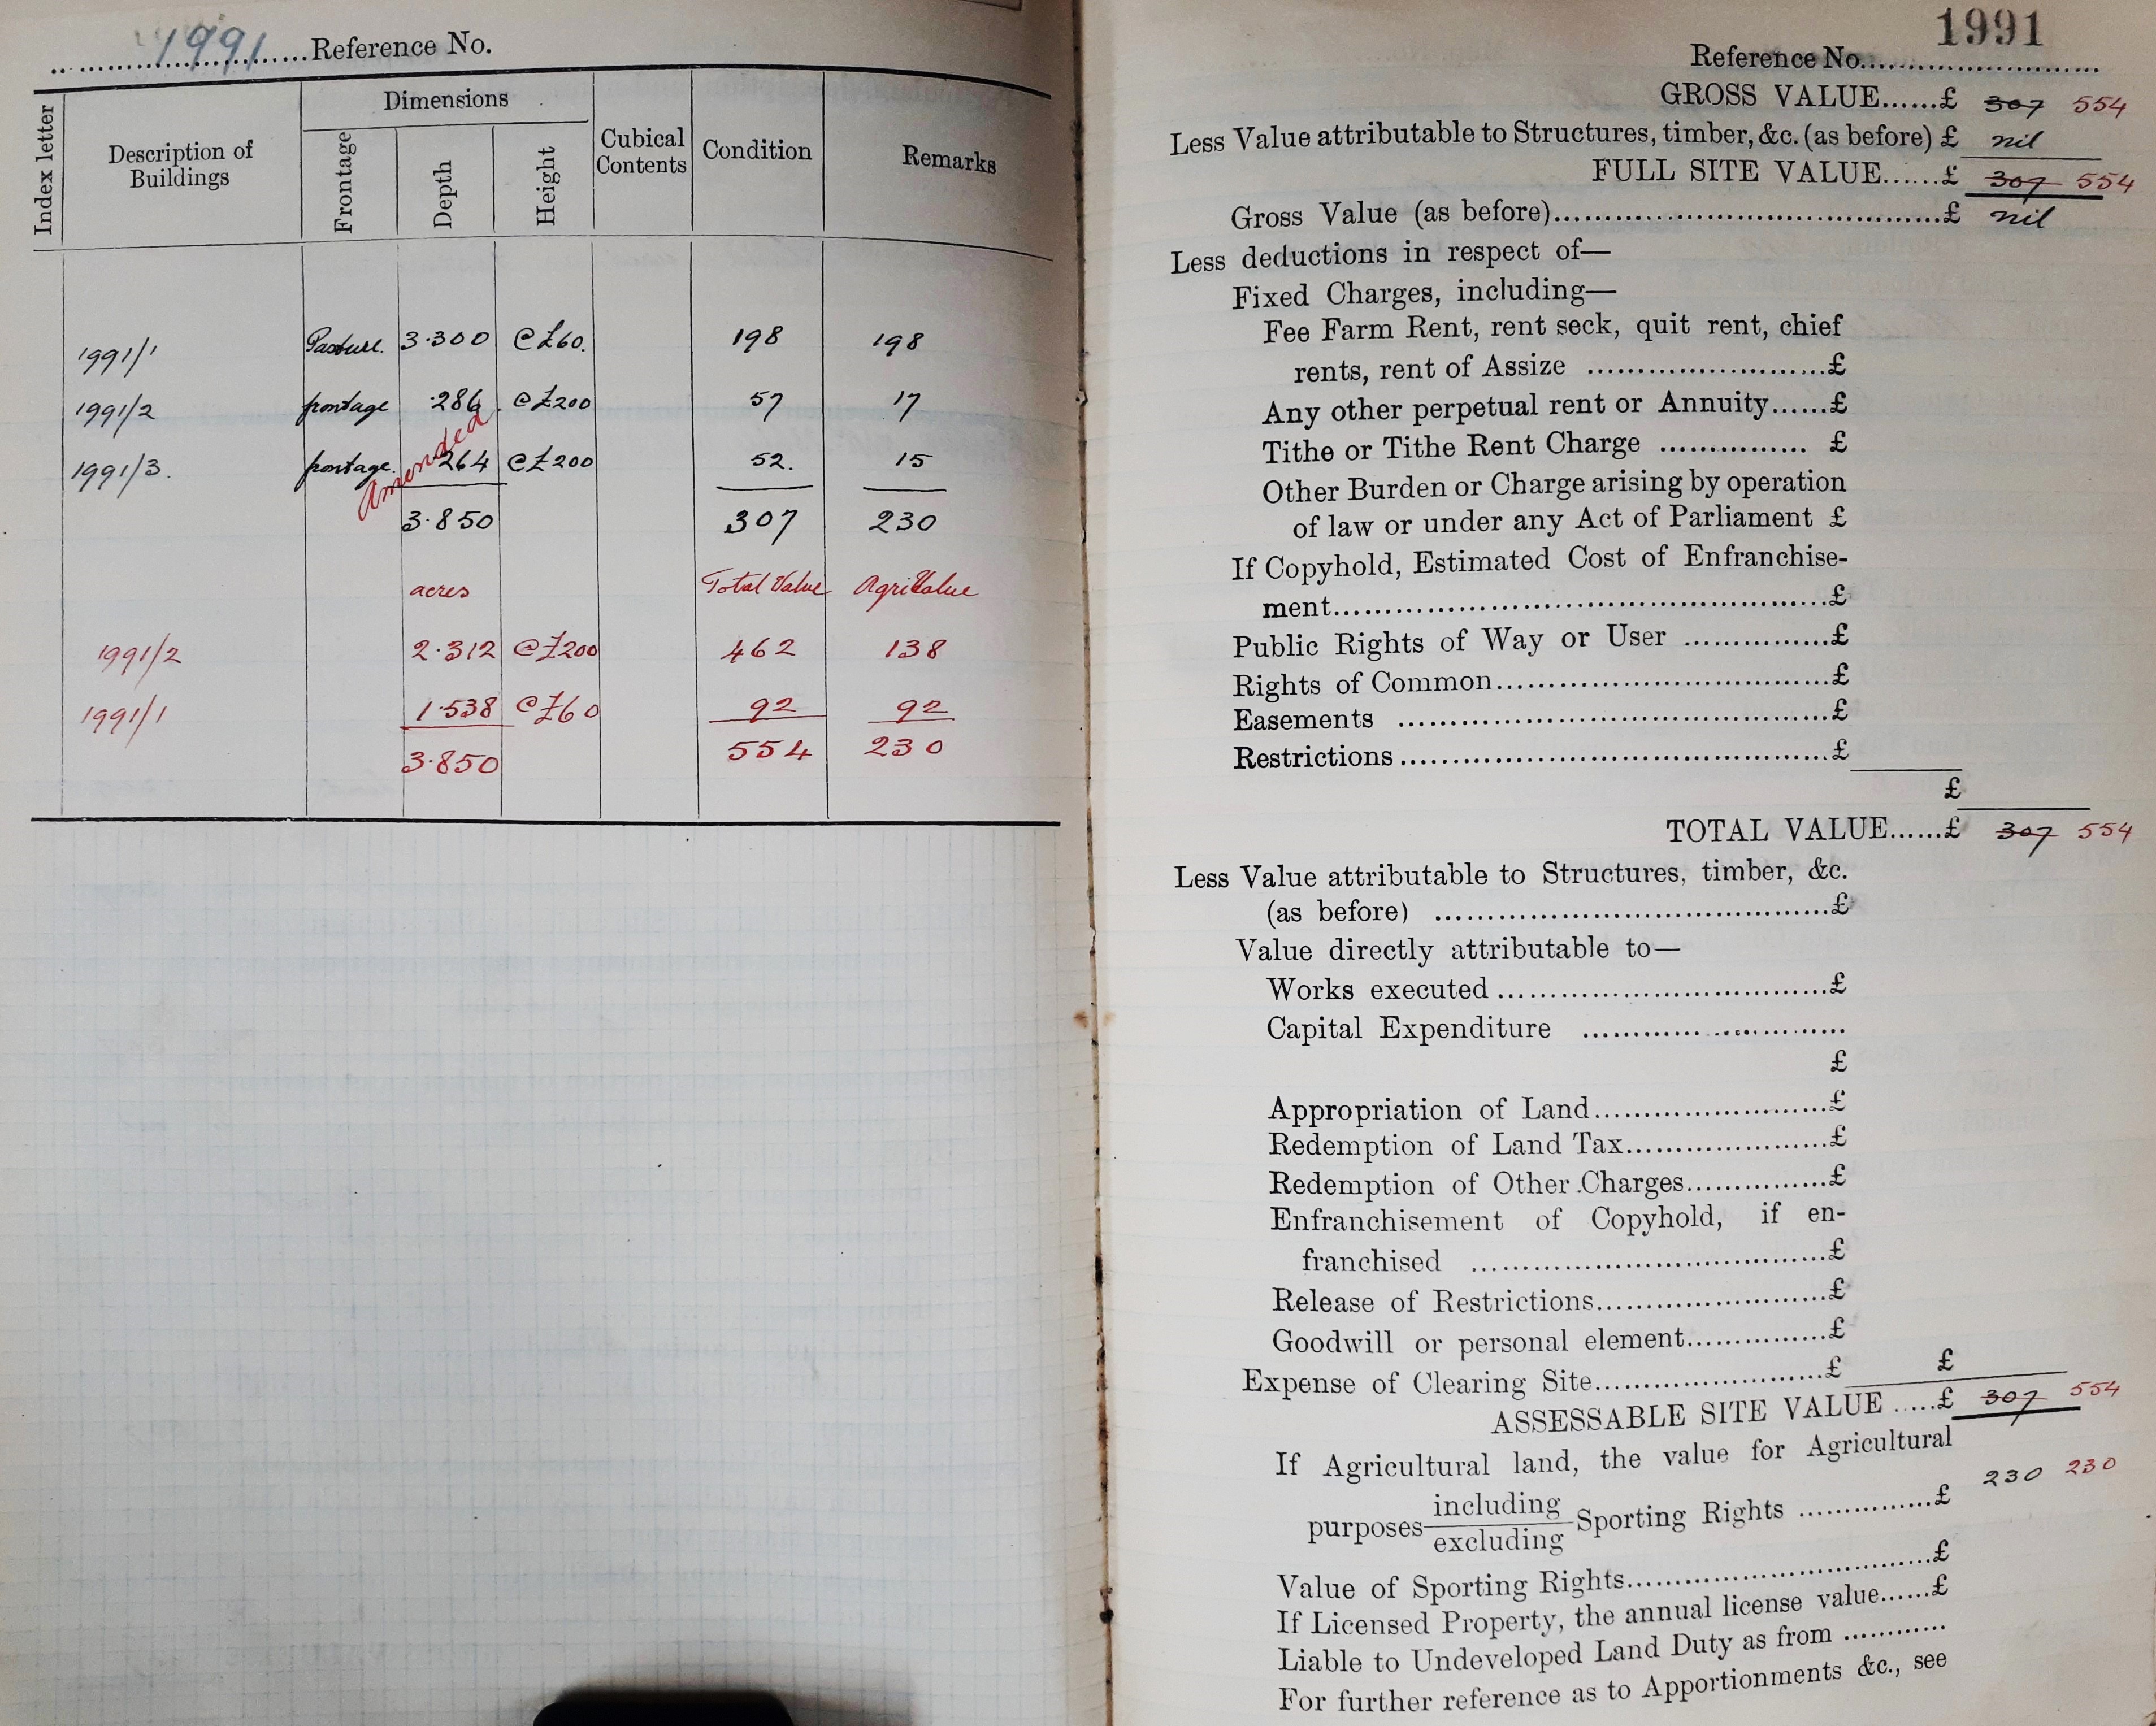 1991 Reference No.
Index letter
Description of Buildings
Dimensions
Frontage
Depth
Height
Cubical Contents
Condition
Remarks
1991/1 Pasture. 3·300 @£60. 198 198
1991/2 frontage ·286 @£200 57 17
1991/3. frontage. ·264 @£200 52. 15
Amended
3·850 307 230
acres Total Value Agri Value
1991/2 2·312 @£200 462 138
1991/1 1·538 @£60 92 92
3·850 554 230
1991
Reference No..............................
GROSS VALUE......£ 307 554
Less Value attributable to Structures, timber, &c. (as before) £ nil
FULL SITE VALUE......£ 307 554
Gross Value (as before)..................................................£ nil
Less deductions in respect of—
Fixed Charges, including—
Fee Farm Rent, rent seck, quit rent, chief
rents, rent of Assize ..........................£
Any other perpetual rent or Annuity......£
Tithe or Tithe Rent Charge ............... £
Other Burden or Charge arising by operation
of law or under any Act of Parliament £
If Copyhold, Estimated Cost of Enfranchise-
ment......................................................£
Public Rights of Way or User ................£
Rights of Common....................................£
Easements ..............................................£
Restrictions..............................................£
£
TOTAL VALUE......£ 307 554
Less Value attributable to Structures, timber, &c.
(as before) ..........................................£
Value directly attributable to—
Works executed ....................................£
Capital Expenditure ............................
£
Appropriation of Land..........................£
Redemption of Land Tax......................£
Redemption of Other Charges...............£
Enfranchisement of Copyhold, if en-
franchised ......................................£
Release of Restrictions..........................£
Goodwill or personal element................£
Expense of Clearing Site.........................£ £
ASSESSABLE SITE VALUE .....£ 307 554
If Agricultural land, the value for Agricultural
purposes including/excluding Sporting Rights ...............£ 230 230
Value of Sporting Rights..................................£
If Licensed Property, the annual license value......£
Liable to Undeveloped Land Duty as from ............
For further reference as to Apportionments &c., see